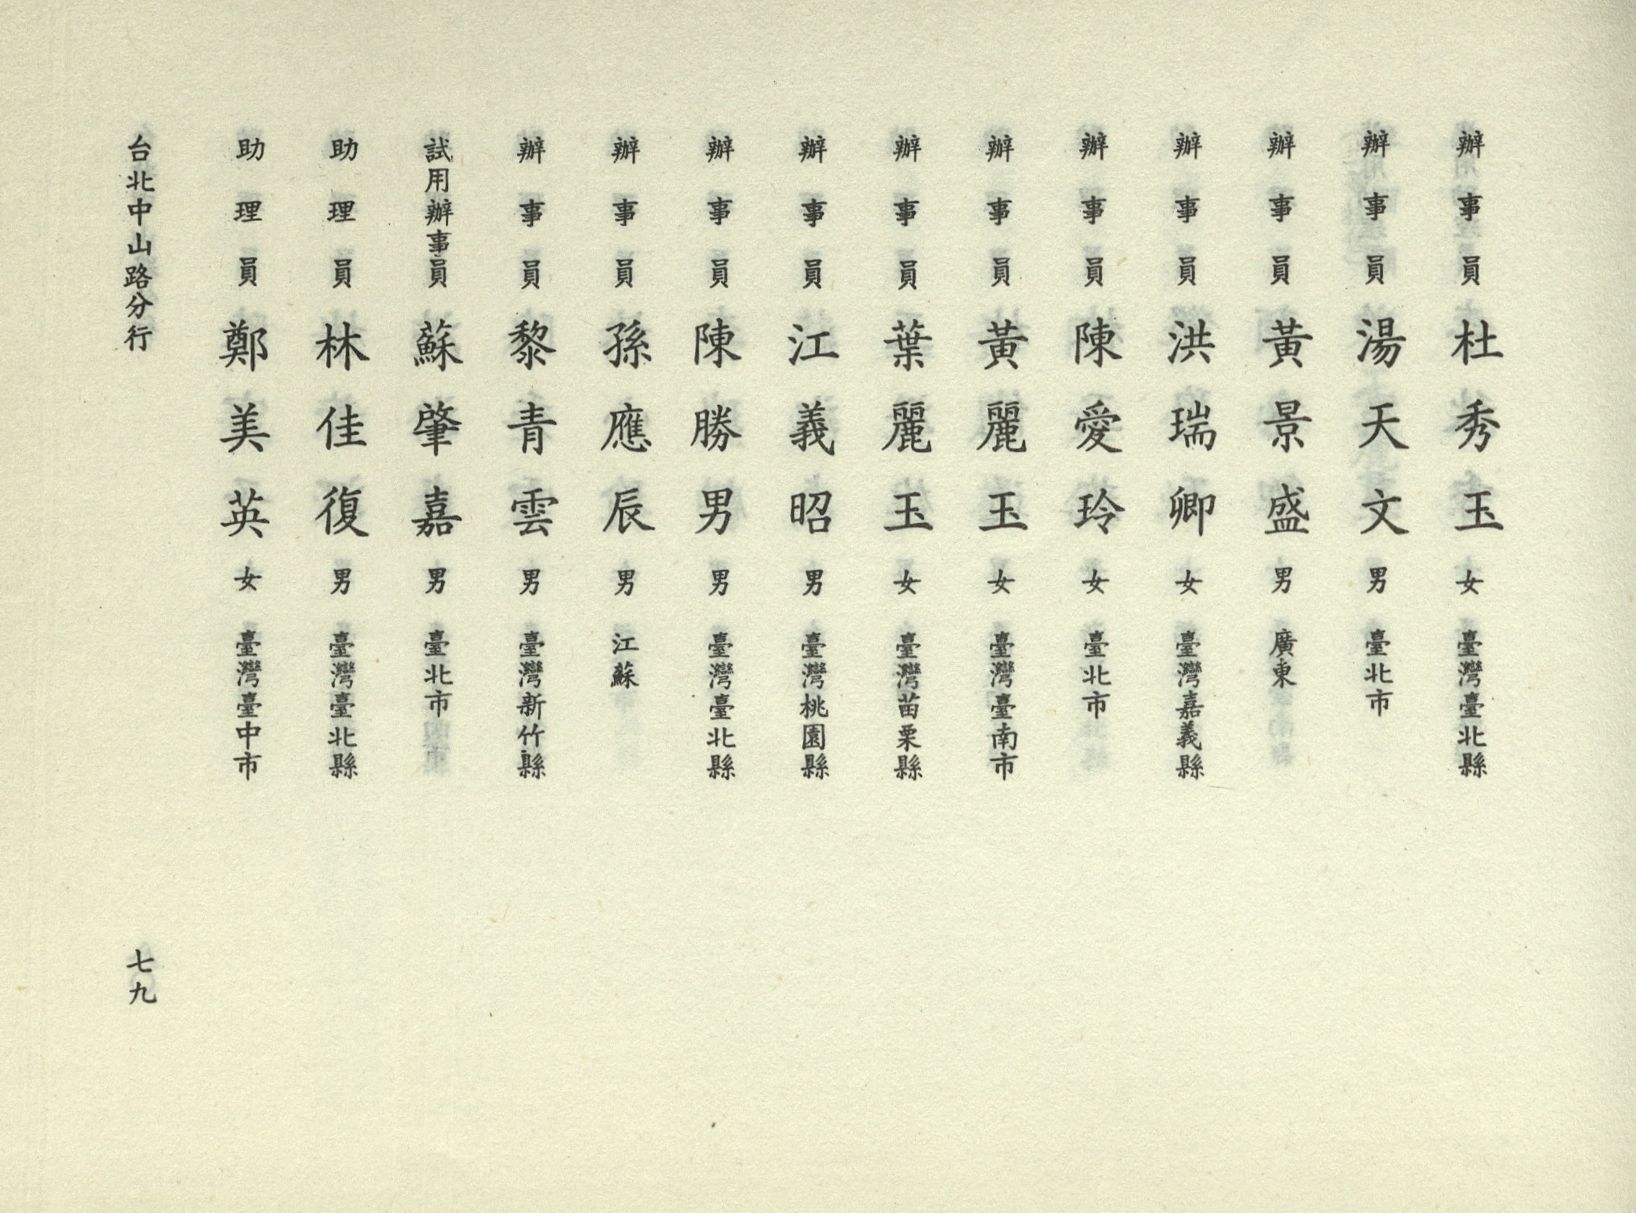 辦事員 杜秀玉 女 臺灣臺北縣
辦事員 湯天文 男 臺北市
辦事員 黃景盛 男 廣東
辦事員 洪瑞卿 女 臺灣嘉義縣
辦事員 陳愛玲 女 臺北市
辦事員 黃麗玉 女 臺灣臺南市
辦事員 葉麗玉 女 臺灣苗栗縣
辦事員 江義昭 男 臺灣桃園縣
辦事員 陳勝男 男 臺灣臺北縣
辦事員 孫應辰 男 江蘇
辦事員 黎青雲 男 臺灣新竹縣
試用辦事員 蘇肇嘉 男 臺北市
助理員 林佳復 男 臺灣臺北縣
助理員 鄭美英 女 臺灣臺中市
台北中山路分行 七九